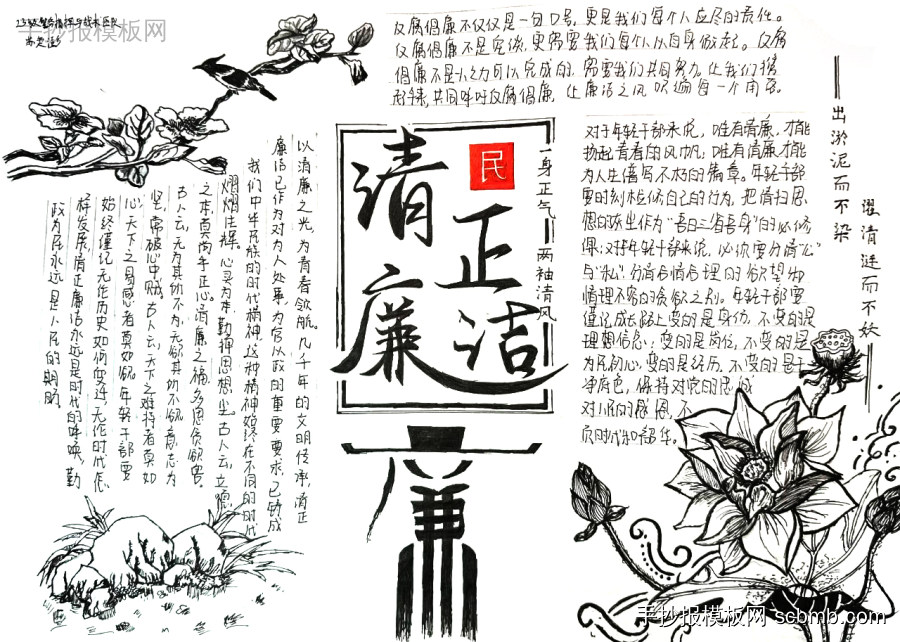 手抄报模板网
反腐倡廉不仅仅是一句口号，更是我们每个人应尽的责任。
反腐倡廉不是空谈，更需要我们每个人从自身做起。反腐
倡廉不是一人之力可以完成的，需要我们共同努力。让我们携
起手来，共同呼吁反腐倡廉，让廉洁之风吹遍每一个角落。
清廉
正洁
民
一身正气
两袖清风
出淤泥而不染
濯清涟而不妖
对于年轻干部来说，唯有清廉，才能
扬起青春的风帆；唯有清廉才能
为人生谱写不朽的篇章。年轻干部
要时刻检修自己的行为，把清扫思
想的灰尘作为“吾日三省吾身”的必修
课；对于年轻干部来说，必须要分清“公”
与“私”，分清合情合理的欲望和
情理不容的贪欲之别。年轻干部要
谨记成长路上变的是身份，不变的是
理想信念；变的是岗位，不变的是
为民初心；变的是经历，不变的是干
净底色，保持对党的忠诚
对人民的感恩，不
负时代和韶华。
以清廉之光，为青春领航。几千年的文明传承，清正
廉洁已作为对为人处事、为官以政的重要要求，已铸成
我们中华民族的时代精神，这种精神始终在不同的时代
熠熠生辉。
之本莫尚乎正心。清廉之祸，多思贪欲害。
古人云，无为其所不为，无欲其所不欲。意志为
坚，常破心中贼。古人云，天下之难持者莫如
心，天下之易感者莫如欲。年轻干部要
始终谨记，无论历史如何变迁，无论时代怎
样发展，清正廉洁永远是时代的呼唤，勤
政为民永远是人民的期盼。
廉
手抄报模板网 scbmb.com